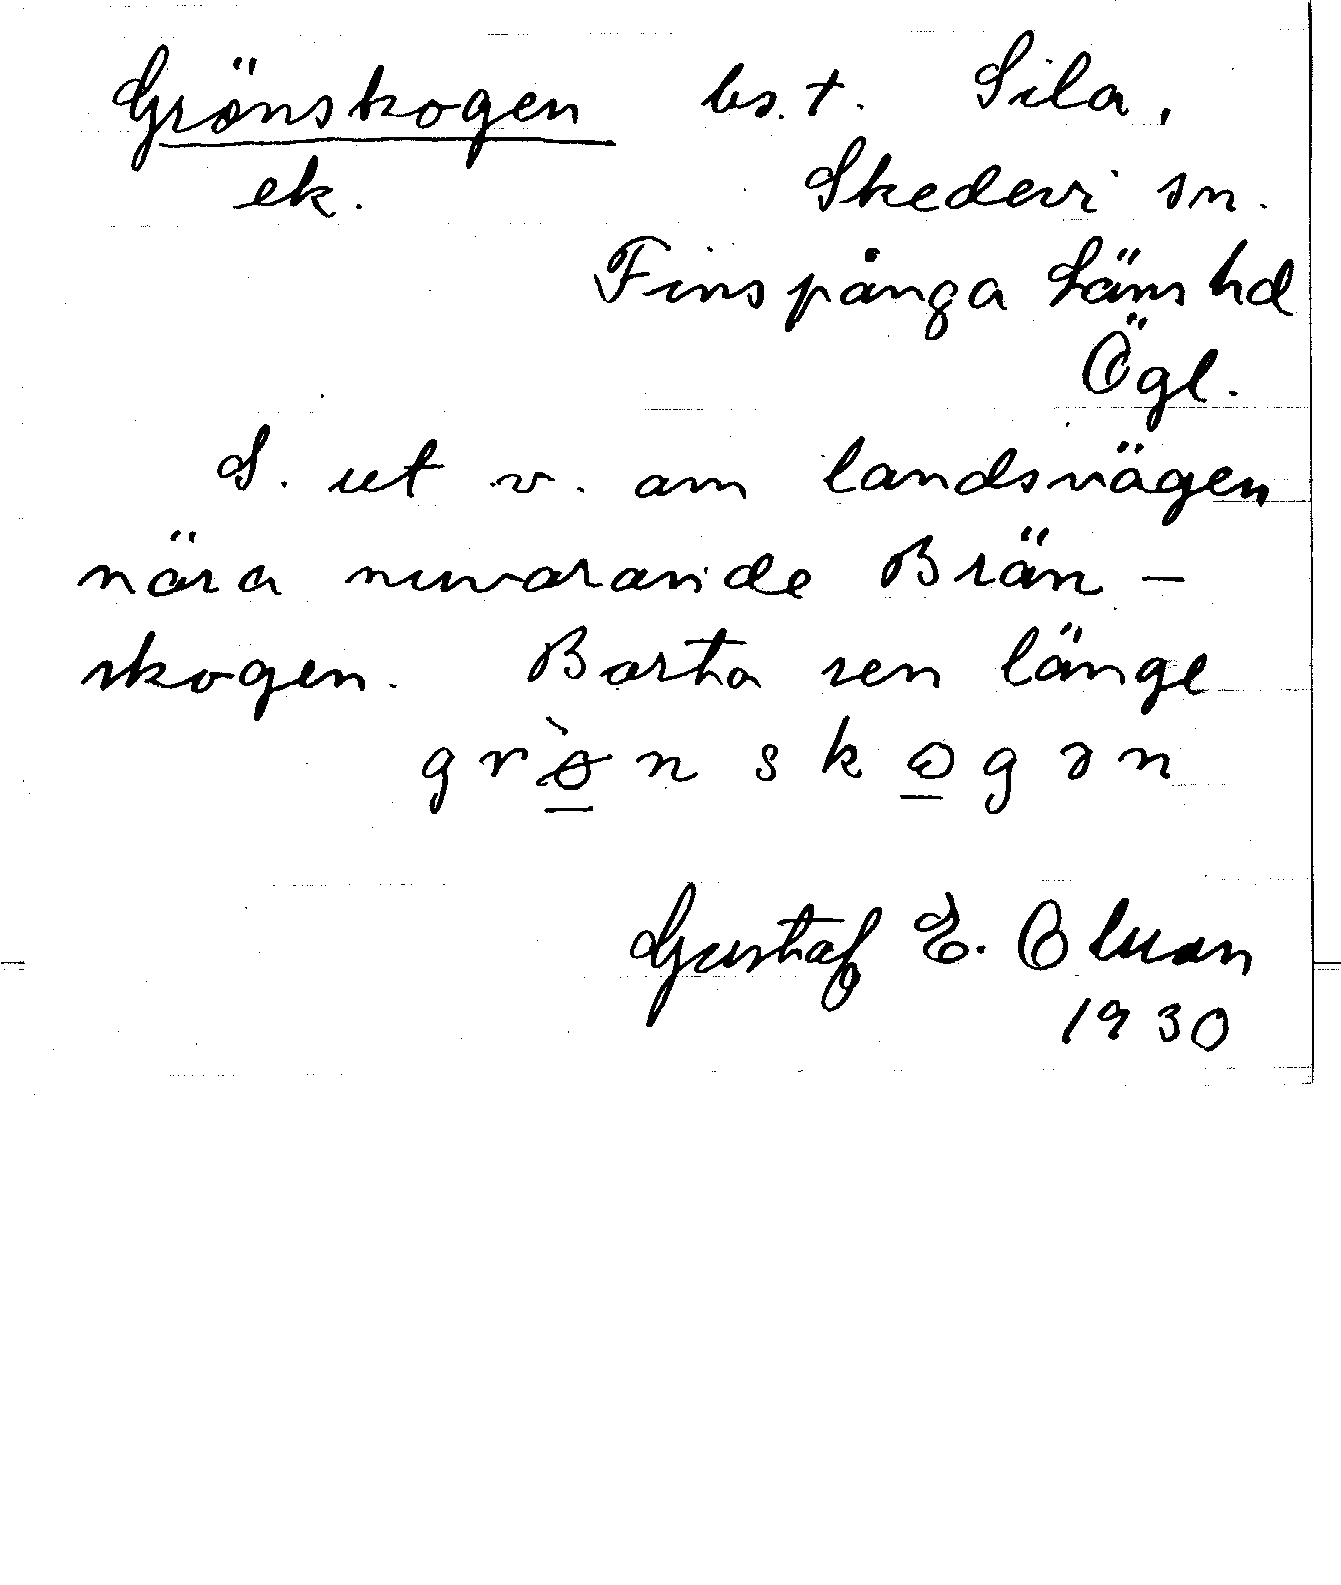 Grönskogen bs. t. Sila,
ek. Skedevi sn.
Finspånga Läns hd
Ögl.
S. ut v. om landsvägen
nära nuvarande Brän-
skogen. Borta sen länge
grø̀nskogən
Gustaf E. Olsson
1930